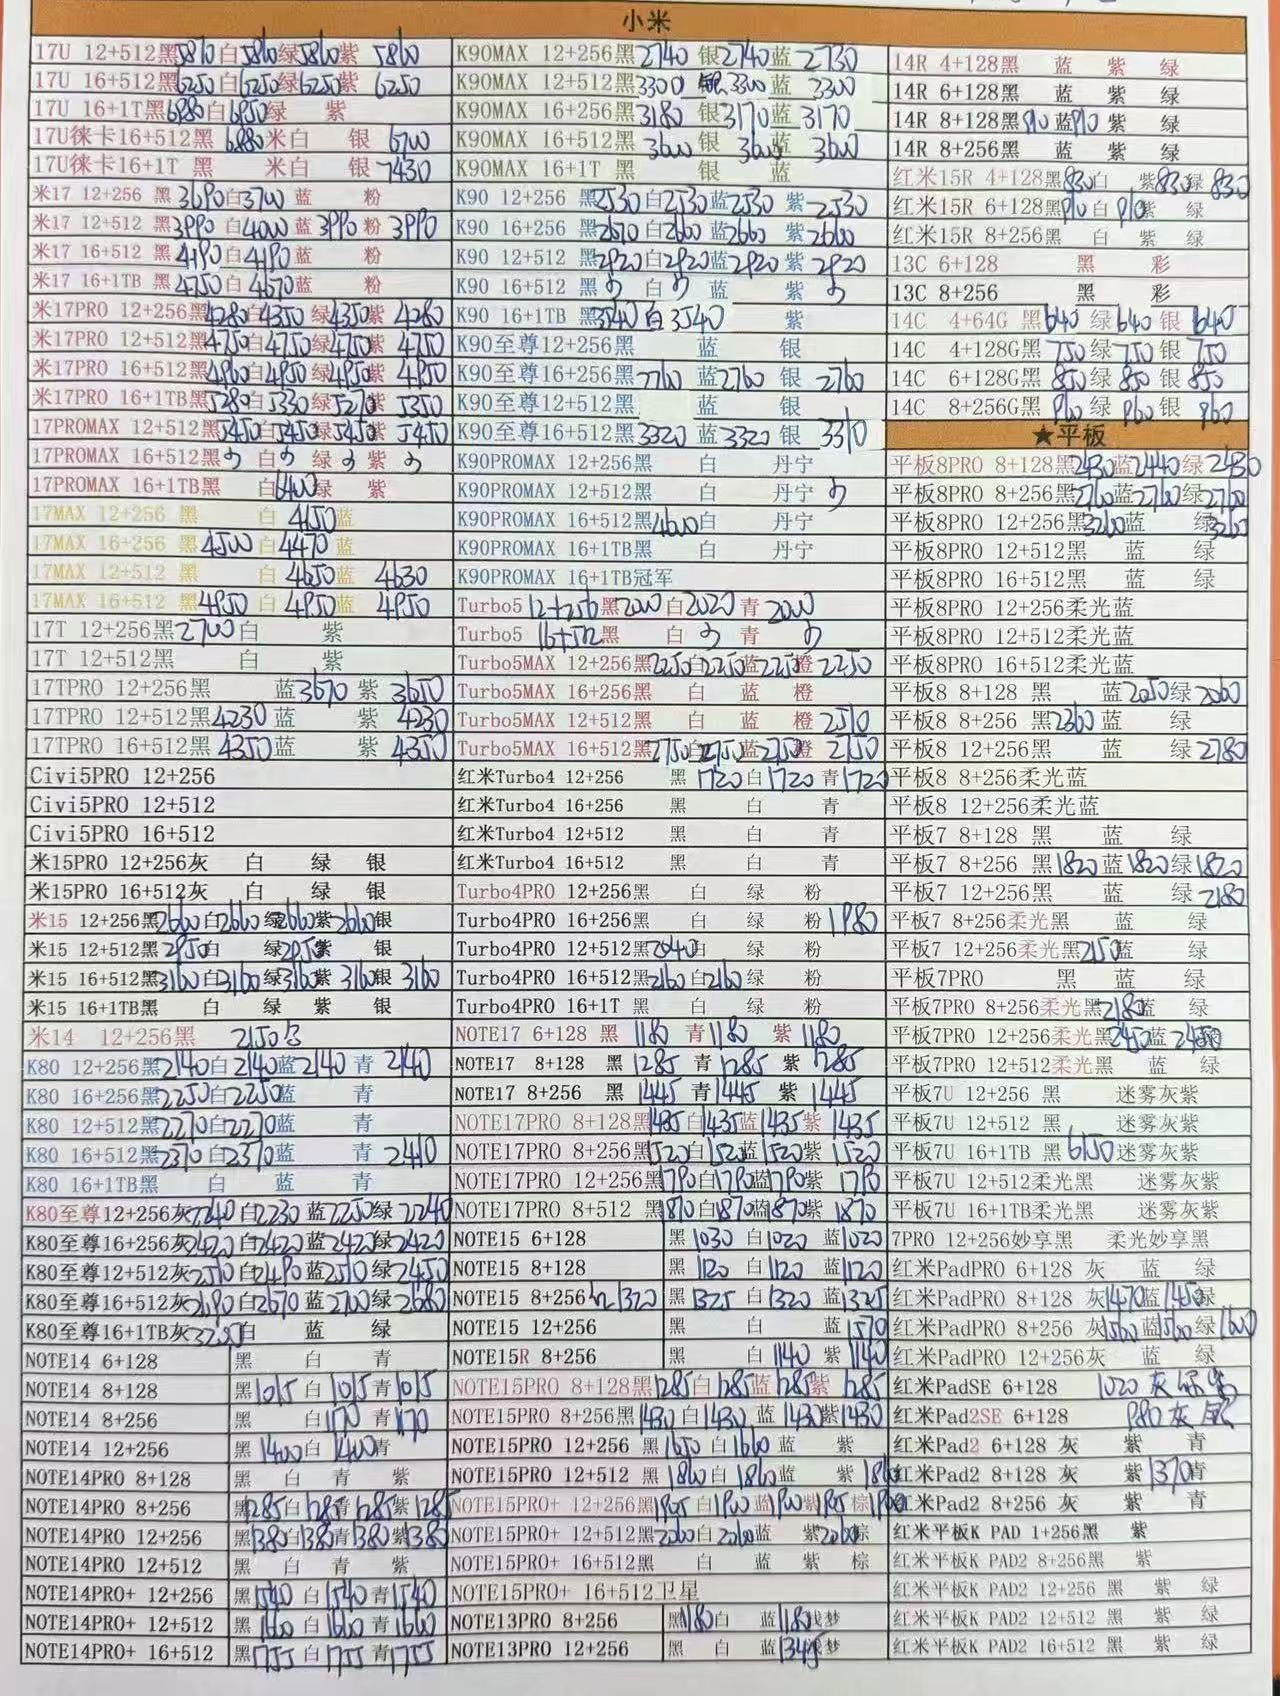 小米
17U 12+512黑5870白5860绿5860紫 5860
17U 16+512黑6250白6250绿6250紫 6250
17U 16+1T黑6980白6950绿 紫
17U徕卡16+512黑 6880 米白 银 6700
17U徕卡16+1T 黑 米白 银 7430
米17 12+256 黑 3690白3700 蓝 粉
米17 12+512 黑3990白4000 蓝 3990 粉 3990
米17 16+512 黑4190白4190蓝 粉
米17 16+1TB 黑4750白4670蓝 粉
米17PRO 12+256黑4280白4350绿4350紫 4280
米17PRO 12+512黑4750白4750绿4750紫 4750
米17PRO 16+512黑4960白4950绿4950紫 4950
米17PRO 16+1TB黑5280白5330绿5270紫5350
17PROMAX 12+512黑5450白5450绿5450紫 5450
17PROMAX 16+512黑 白 绿 紫
17PROMAX 16+1TB黑 白6400绿 紫
17MAX 12+256 黑 白 4150蓝
17MAX 16+256 黑4500 白4470蓝
17MAX 12+512 黑 白 4650蓝 4630
17MAX 16+512 黑4950 白 4950蓝 4950
17T 12+256黑2700白 紫
17T 12+512黑 白 紫
17TPRO 12+256黑 蓝3670 紫 3650
17TPRO 12+512黑4230蓝 紫 4230
17TPRO 16+512黑4350蓝 紫4350
Civi5PRO 12+256
Civi5PRO 12+512
Civi5PRO 16+512
米15PRO 12+256灰 白 绿 银
米15PRO 16+512灰 白 绿 银
米15 12+256黑2660白2660绿2660紫2660银
米15 12+512黑2950白 绿2950紫 银
米15 16+512黑3160白3160绿3160紫3160银3160
米15 16+1TB黑 白 绿 紫 银
米14 12+256黑 2150
K80 12+256黑2140白2140蓝2140 青 2140
K80 16+256黑2250白2250蓝 青
K80 12+512黑2270白2270蓝 青
K80 16+512黑2370白2370蓝 青2410
K80 16+1TB黑 白 蓝 青
K80至尊12+256灰2240白2230蓝2250绿2240
K80至尊16+256灰2420白2420蓝2420绿2420
K80至尊12+512灰2510白2490蓝2510绿2450
K80至尊16+512灰2690白2670蓝2700绿2680
K80至尊16+1TB灰 白 蓝 绿
NOTE14 6+128 黑 白 青
NOTE14 8+128 黑1015白1015青1015
NOTE14 8+256 黑 白1170青1170
NOTE14 12+256 黑1400白1400青
NOTE14PRO 8+128 黑 白 青 紫
NOTE14PRO 8+256 黑1285白1285青1285紫1285
NOTE14PRO 12+256 黑1380白1380青1380紫1380
NOTE14PRO 12+512 黑 白 青 紫
NOTE14PRO+ 12+256 黑1540白1540青1540
NOTE14PRO+ 12+512 黑1660白1660青1660
NOTE14PRO+ 16+512 黑1755白1755青1755
K90MAX 12+256黑2740 银2740蓝 2730
K90MAX 12+512黑3300 银3300蓝 3300
K90MAX 16+256黑3180 银3170蓝 3170
K90MAX 16+512黑3600 银3600蓝 3600
K90MAX 16+1T 黑 银 蓝
K90 12+256 黑2530白2530蓝2530 紫 2530
K90 16+256 黑2670白2660蓝2660 紫2660
K90 12+512 黑2920白2920蓝2920 紫 2920
K90 16+512 黑 白 蓝 紫
K90 16+1TB 黑3540白3540 紫
K90至尊12+256黑 蓝 银
K90至尊16+256黑2760 蓝2760 银 2760
K90至尊12+512黑 蓝 银
K90至尊16+512黑3320 蓝3320 银 3310
K90PROMAX 12+256黑 白 丹宁
K90PROMAX 12+512黑 白 丹宁
K90PROMAX 16+512黑4600白 丹宁
K90PROMAX 16+1TB黑 白 丹宁
K90PROMAX 16+1TB冠军
Turbo5 12+256黑2000白2020青 2000
Turbo5 16+512黑 白 青
Turbo5MAX 12+256黑2250白2250蓝2250橙2250
Turbo5MAX 16+256黑 白 蓝 橙
Turbo5MAX 12+512黑 白 蓝 橙2510
Turbo5MAX 16+512黑2750白2750蓝2750橙2750
红米Turbo4 12+256 黑 1720白1720青1720
红米Turbo4 16+256 黑 白 青
红米Turbo4 12+512 黑 白 青
红米Turbo4 16+512 黑 白 青
Turbo4PRO 12+256黑 白 绿 粉
Turbo4PRO 16+256黑 白 绿 粉1980
Turbo4PRO 12+512黑2040白 绿 粉
Turbo4PRO 16+512黑2160白2160绿 粉
Turbo4PRO 16+1T 黑 白 绿 粉
NOTE17 6+128 黑 1180 青1180 紫 1180
NOTE17 8+128 黑 1285 青1285紫 1285
NOTE17 8+256 黑 1445 青1445 紫 1445
NOTE17PRO 8+128黑1435白1435蓝1435紫 1435
NOTE17PRO 8+256黑1520白1520蓝1520紫 1520
NOTE17PRO 12+256黑1790白1790蓝1790紫 1790
NOTE17PRO 8+512 黑1870白1870蓝1870紫 1870
NOTE15 6+128 黑 1030 白1020 蓝1020
NOTE15 8+128 黑 1120 白1120 蓝1120
NOTE15 8+256 1320 黑 1325 白1320 蓝1325
NOTE15 12+256 黑 白 蓝1570
NOTE15R 8+256 黑 白1140 紫1140
NOTE15PRO 8+128黑1285白1285蓝1285紫 1285
NOTE15PRO 8+256黑1430白1430 蓝1430紫1430
NOTE15PRO 12+256 黑1650白1660蓝 紫
NOTE15PRO 12+512 黑1860白1860蓝 紫1860
NOTE15PRO+ 12+256黑1905白1900蓝1900紫1905棕1900
NOTE15PRO+ 12+512黑2060白2060蓝 紫2060棕
NOTE15PRO+ 16+512黑 白 蓝 紫 棕
NOTE15PRO+ 16+512卫星
NOTE13PRO 8+256 黑1180白 蓝1180 梦
NOTE13PRO 12+256 黑 白 蓝1345 梦
14R 4+128黑 蓝 紫 绿
14R 6+128黑 蓝 紫 绿
14R 8+128黑910蓝910紫 绿
14R 8+256黑 蓝 紫 绿
红米15R 4+128黑830白 紫830绿830
红米15R 6+128黑910白910紫 绿
红米15R 8+256黑 白 紫 绿
13C 6+128 黑 彩
13C 8+256 黑 彩
14C 4+64G 黑640 绿640 银640
14C 4+128G黑750绿750 银750
14C 6+128G黑850绿850 银850
14C 8+256G黑960 绿960 银960
★平板
平板8PRO 8+128黑2430蓝2440绿2430
平板8PRO 8+256黑2760蓝2760绿2760
平板8PRO 12+256黑3260蓝 绿3260
平板8PRO 12+512黑 蓝 绿
平板8PRO 16+512黑 蓝 绿
平板8PRO 12+256柔光蓝
平板8PRO 12+512柔光蓝
平板8PRO 16+512柔光蓝
平板8 8+128 黑 蓝2050绿2060
平板8 8+256 黑2360蓝 绿
平板8 12+256黑 蓝 绿2780
平板8 8+256柔光蓝
平板8 12+256柔光蓝
平板7 8+128 黑 蓝 绿
平板7 8+256 黑1820蓝1820绿1820
平板7 12+256黑 蓝 绿2180
平板7 8+256柔光黑 蓝 绿
平板7 12+256柔光黑2150蓝 绿
平板7PRO 黑 蓝 绿
平板7PRO 8+256柔光黑2180蓝 绿
平板7PRO 12+256柔光黑2450蓝2450
平板7PRO 12+512柔光黑 蓝 绿
平板7U 12+256 黑 迷雾灰紫
平板7U 12+512 黑 迷雾灰紫
平板7U 16+1TB 黑6150迷雾灰紫
平板7U 12+512柔光黑 迷雾灰紫
平板7U 16+1TB柔光黑 迷雾灰紫
7PRO 12+256妙享黑 柔光妙享黑
红米PadPRO 6+128 灰 蓝 绿
红米PadPRO 8+128 灰1470蓝1450绿
红米PadPRO 8+256 灰1560蓝1560绿1600
红米PadPRO 12+256灰 蓝 绿
红米PadSE 6+128 1020 灰
红米Pad2SE 6+128 980 灰
红米Pad2 6+128 灰 紫 青
红米Pad2 8+128 灰 紫1370青
红米Pad2 8+256 灰 紫 青
红米平板K PAD 1+256黑 紫
红米平板K PAD2 8+256黑 紫
红米平板K PAD2 12+256 黑 紫 绿
红米平板K PAD2 12+512 黑 紫 绿
红米平板K PAD2 16+512 黑 紫 绿